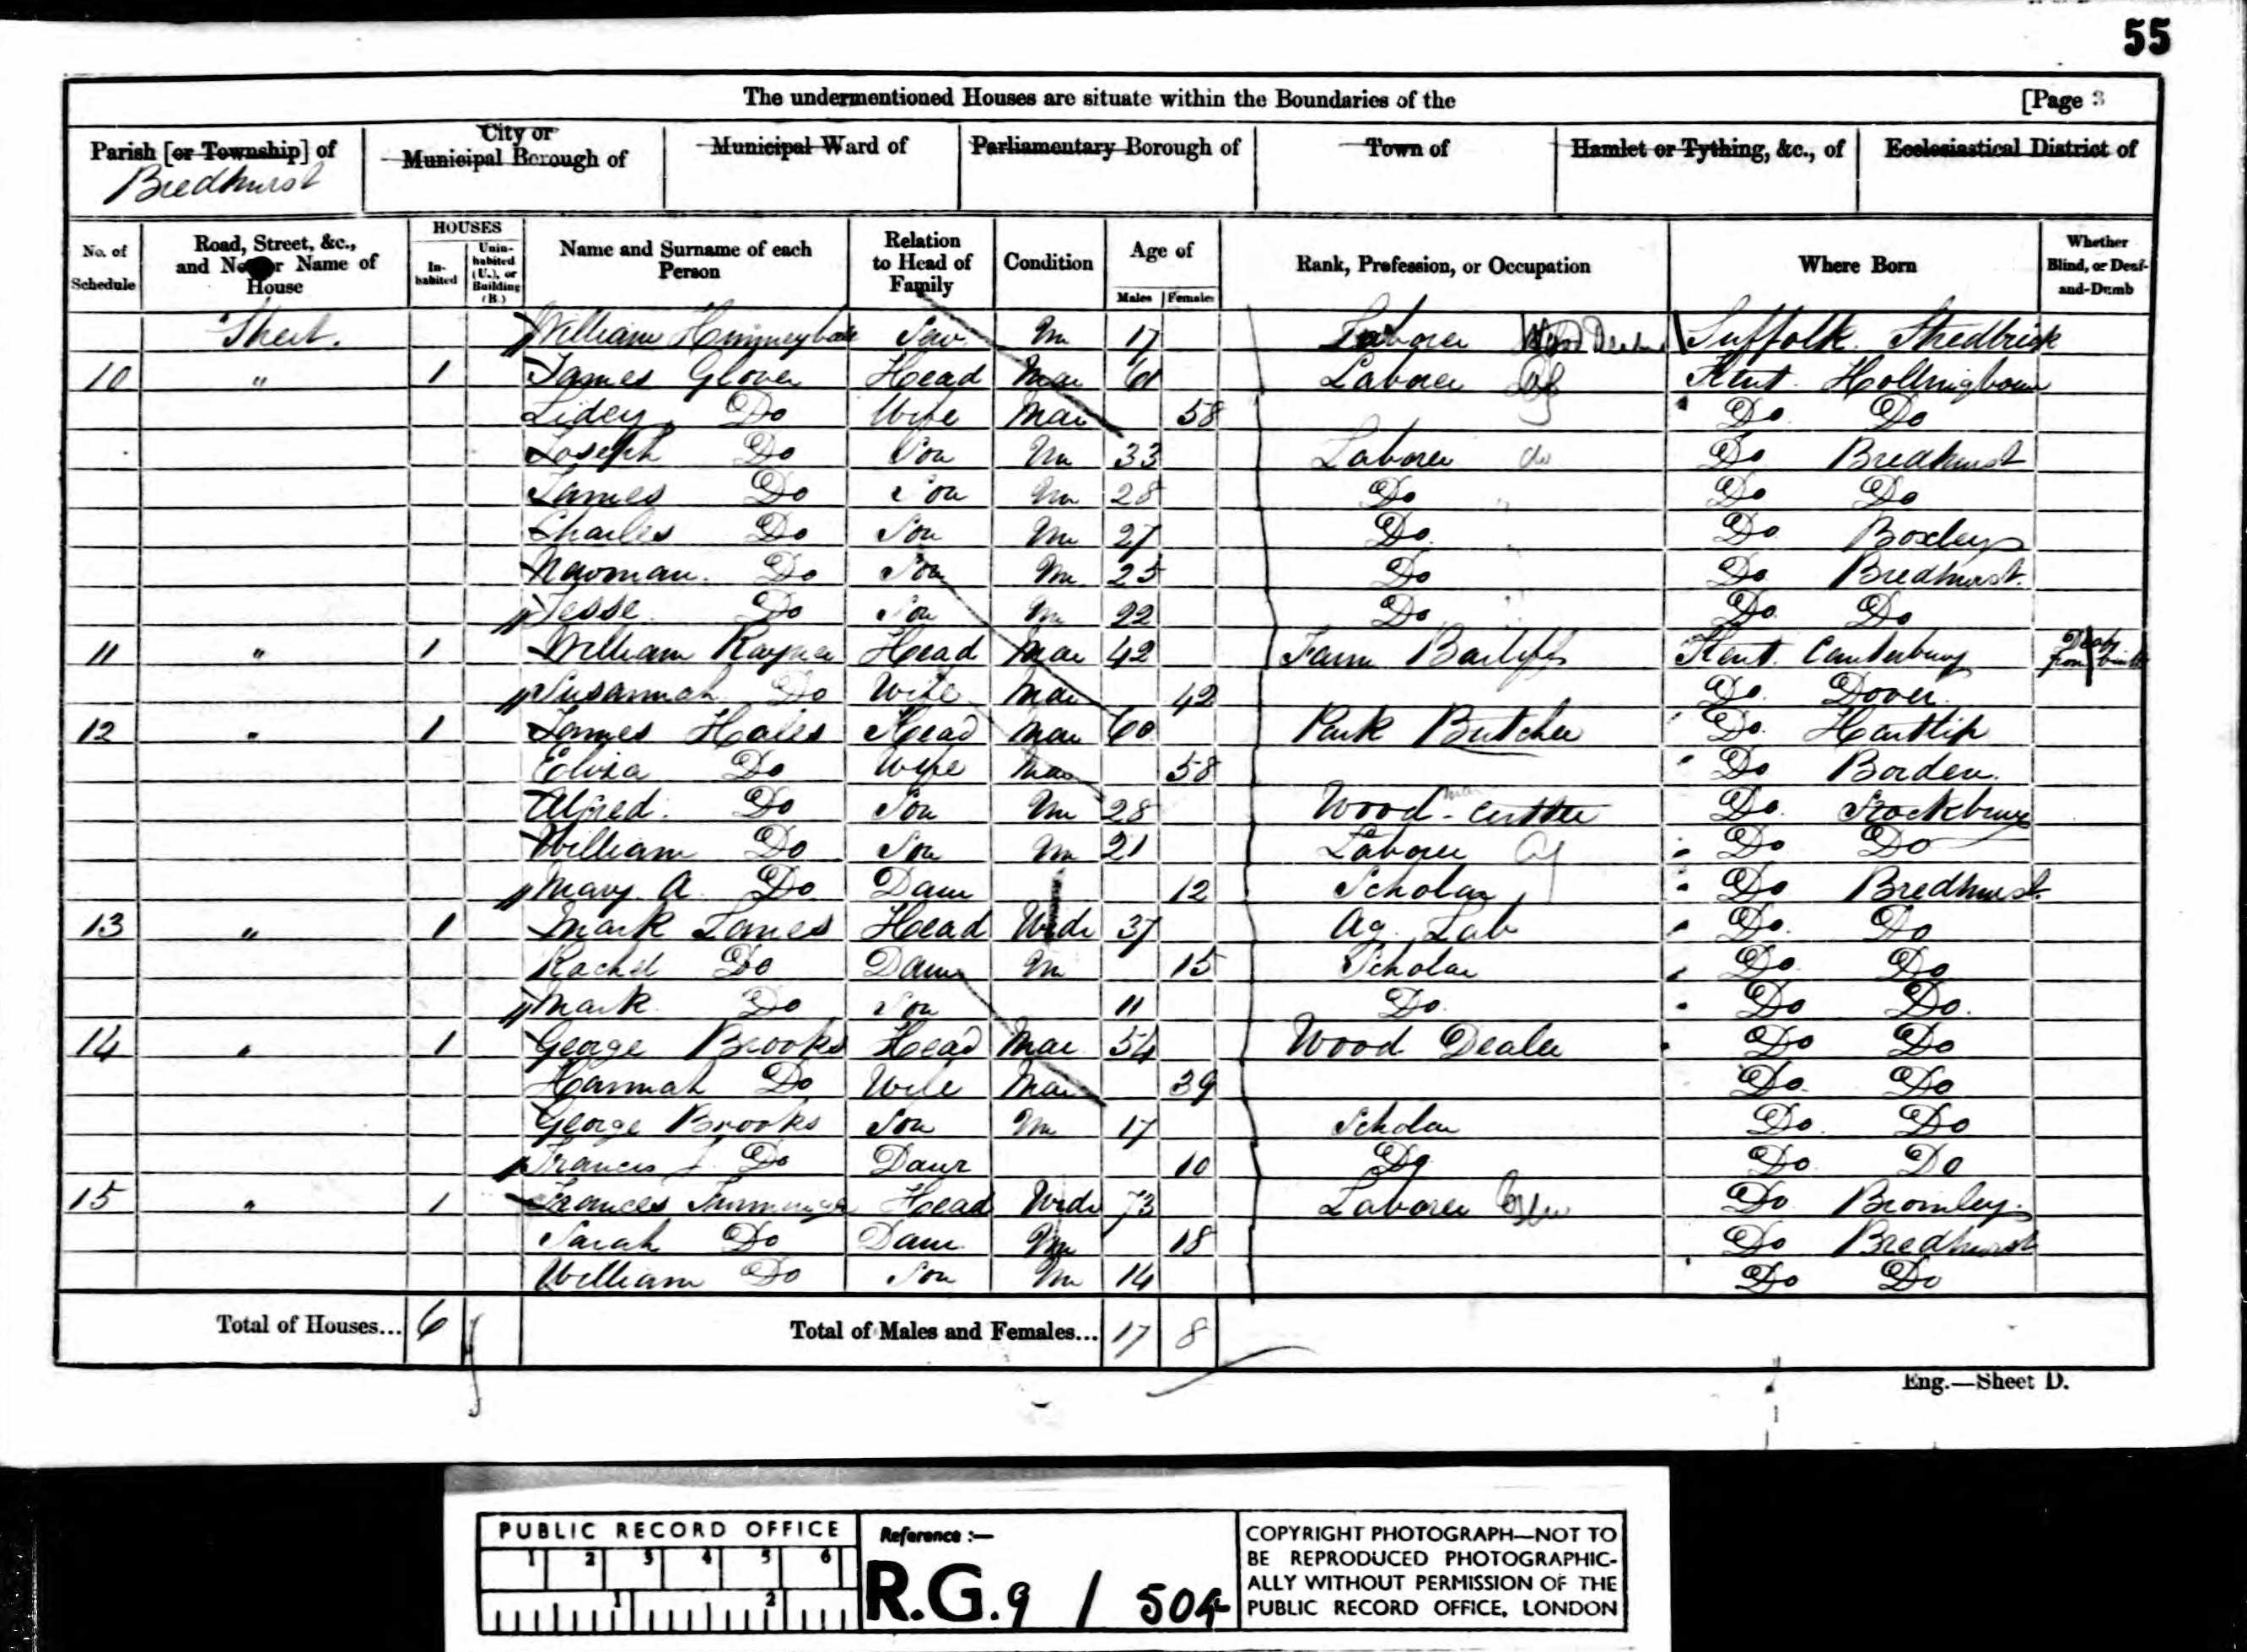 55
The undermentioned Houses are situate within the Boundaries of the [Page 3
Parish [or Township] of City or Municipal Borough of Municipal Ward of Parliamentary Borough of Town of Hamlet or Tything, &c., of Ecclesiastical District of
Bredhurst
No. of Schedule Road, Street, &c., and No. or Name of House HOUSES Inhabited Uninhabited (U.), or Building (B.) Name and Surname of each Person Relation to Head of Family Condition Age of Males Females Rank, Profession, or Occupation Where Born Whether Blind, or Deaf-and-Dumb
Street. William Un 17 Laborer Suffolk
10 " 1 James Glover Head Mar 61 Laborer Ag Kent Hollingbourn
Lidey Do Wife Mar 58 Do Do
Joseph Do Son Un 33 Laborer do Do Bredhurst
James Do Son Un 28 Do Do Do
Charles Do Son Un 27 Do Do Boxley
Do Son Un 25 Do Do Bredhurst
Jesse Do Son Un 22 Do Do Do
11 " 1 William Rayner Head Mar 42 Farm Bailiff Kent Canterbury from birth
Susannah Do Wife Mar 42 Do Dover
12 " 1 James Hales Head Mar 60 Pork Butcher Do Hartlip
Eliza Do Wife Mar 58 Do Borden
Alfred Do Son Un 28 Wood man - Cutter Do
William Do Son Un 21 Laborer Ag Do Do
Mary A Do Daur 12 Scholar Do Bredhurst
13 " 1 Mark James Head Widr 37 Ag. Lab Do Do
Rachel Do Daur Un 15 Scholar Do Do
Mark Do Son 11 Do Do Do
14 " 1 George Brooks Head Mar 54 Wood Dealer Do Do
Hannah Do Wife Mar 39 Do Do
George Brooks Son Un 17 Scholar Do Do
Francis J. Do Daur 10 Do Do Do
15 " 1 Frances Head Widr 73 Laborer Do Bromley
Sarah Do Daur Un 18 Do Bredhurst
William Do Son Un 14 Do Do
Total of Houses... 6 Total of Males and Females... 17 8
Eng.—Sheet D.
PUBLIC RECORD OFFICE
1 2 3 4 5 6
1 2
Reference :—
R.G. 9 / 504
COPYRIGHT PHOTOGRAPH—NOT TO
BE REPRODUCED PHOTOGRAPHIC-
ALLY WITHOUT PERMISSION OF THE
PUBLIC RECORD OFFICE, LONDON